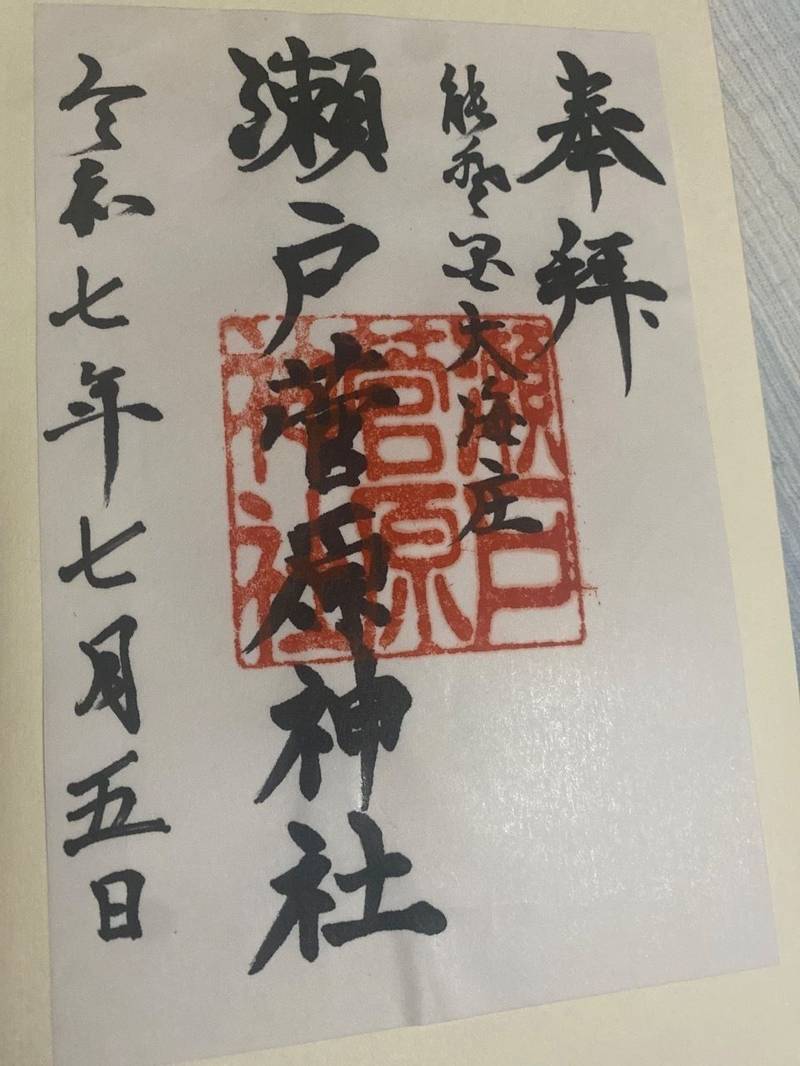 奉拝
能登国大海庄
瀬戸菅原神社
令和七年七月五日
瀬戸
菅原
神社